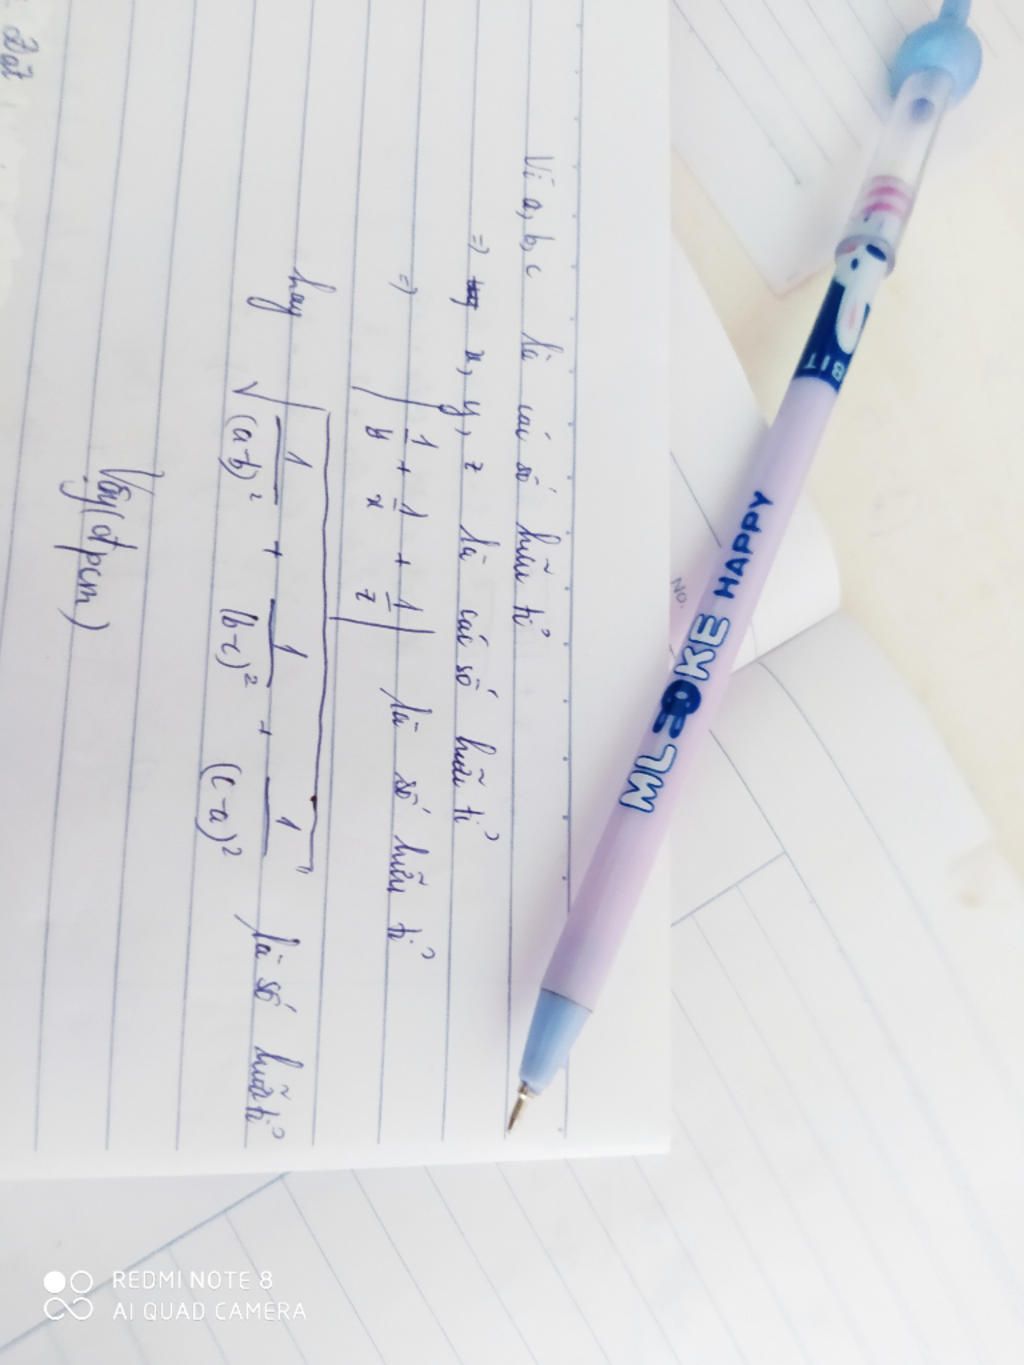 Vì a, b, c là các số hữu tỉ
=> x, y, z là các số hữu tỉ
=> | 1/y + 1/x + 1/z | là số hữu tỉ
hay √(1/(a-b)² + 1/(b-c)² + 1/(c-a)²) là số hữu tỉ
Vậy (đpcm)
Đặt
No.
BIT
MLOKE HAPPY
REDMI NOTE 8
AI QUAD CAMERA